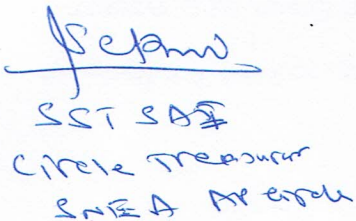 SST SAI
Circle Treasurer
SNEA AP circle